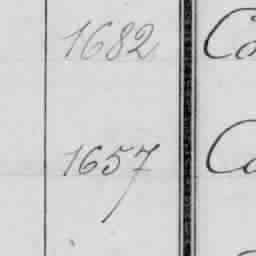 1682 Co
1657 Co